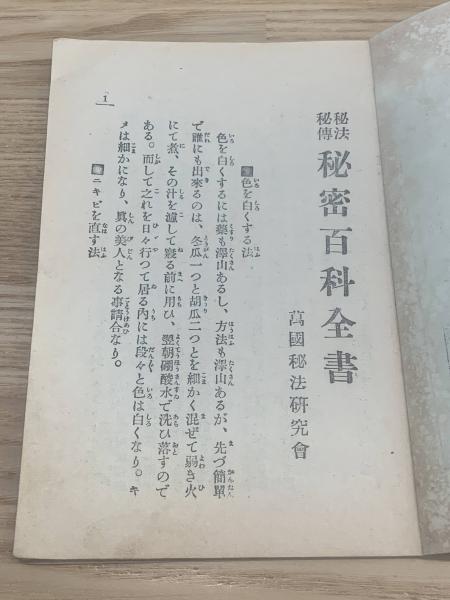 秘法
秘傳
秘密百科全書
萬國秘法研究會
色を白くする法
色を白くするには藥も澤山あるし、方法も澤山あるが、先づ簡單
で誰にも出來るのは、冬瓜一つと胡瓜二つとを細かく混ぜて弱き火
にて煮、その汁を濾して寢る前に用ひ、翌朝硼酸水で洗ひ落すので
ある。而して之れを日々行つて居る內には段々と色は白くなり。キ
メは細かになり、眞の美人となる事請合なり。
ニキビを直す法
1